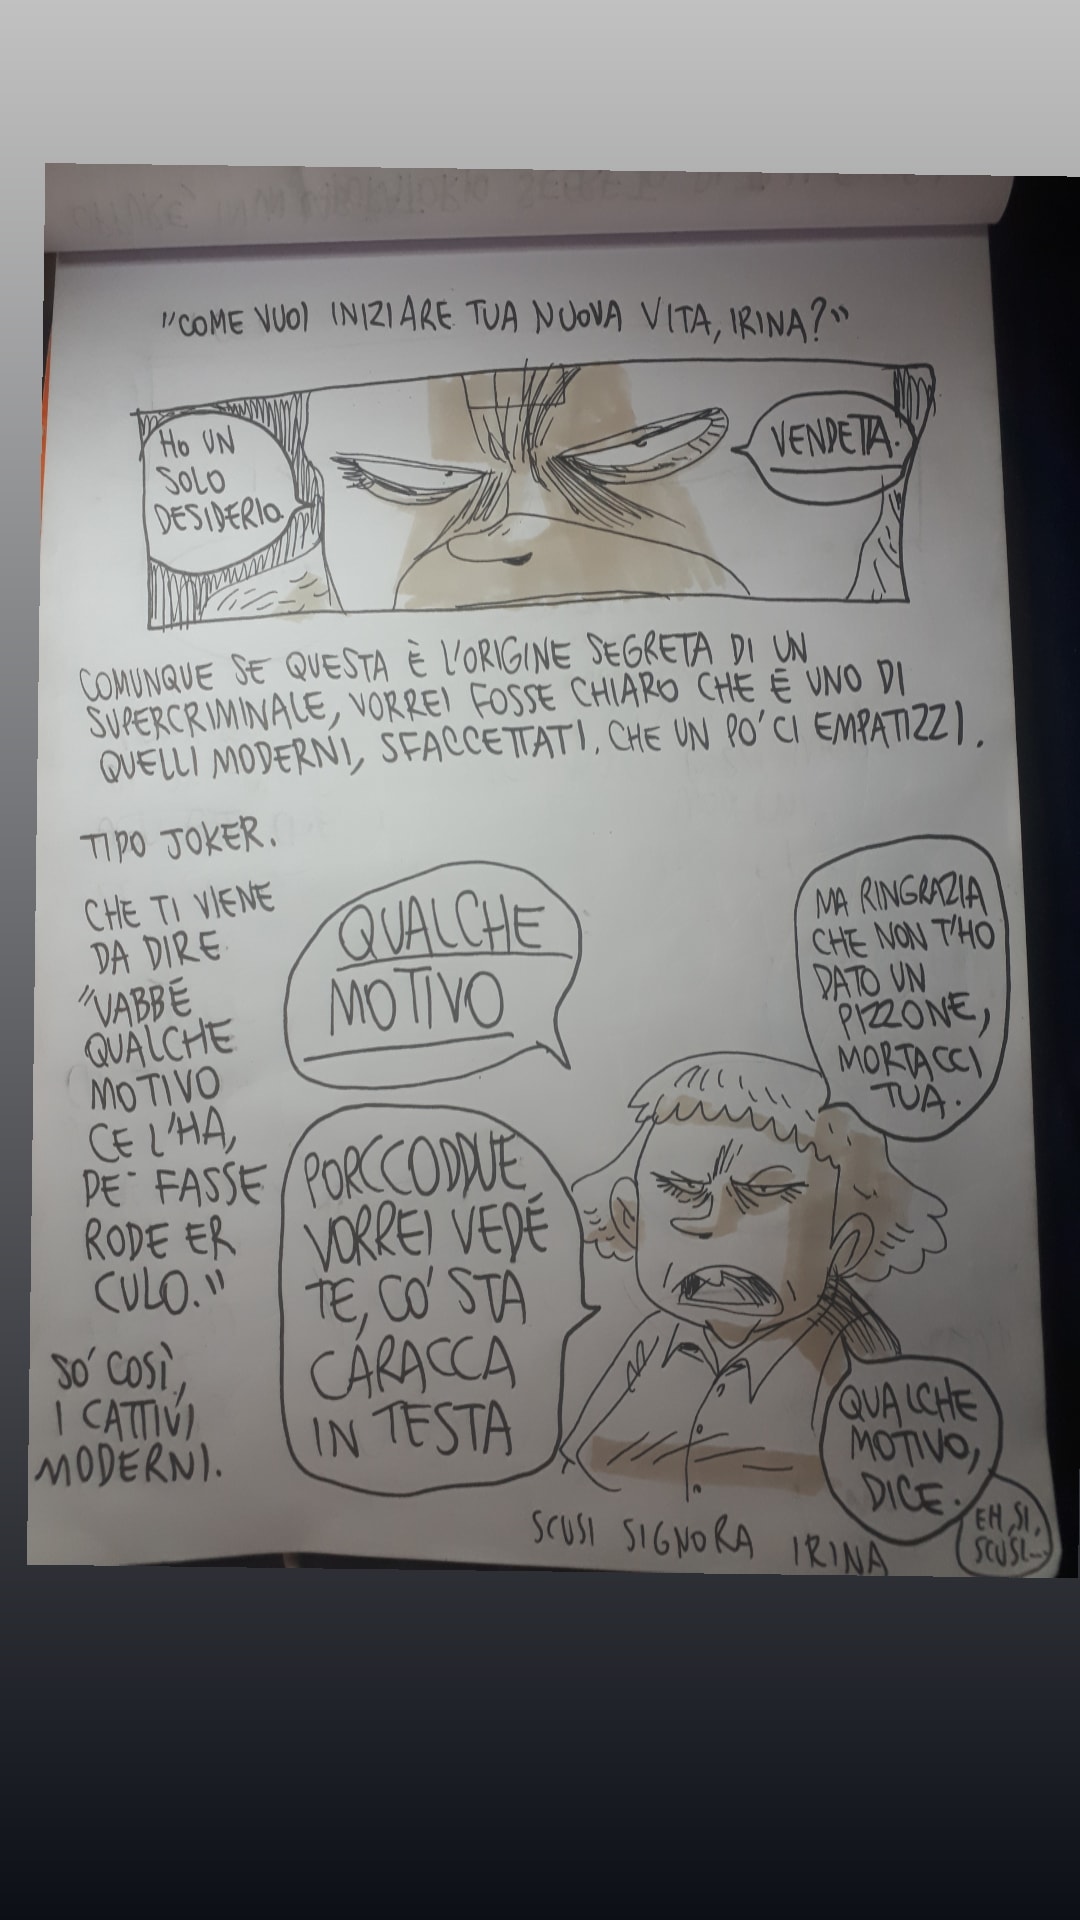 "COME VUOI INIZIARE TUA NUOVA VITA, IRINA?"
HO UN
SOLO
DESIDERIO.
VENDETTA.
COMUNQUE SE QUESTA È L'ORIGINE SEGRETA DI UN
SUPERCRIMINALE, VORREI FOSSE CHIARO CHE È UNO DI
QUELLI MODERNI, SFACCETTATI. CHE UN PO' CI EMPATIZZI.
TIPO JOKER.
CHE TI VIENE
DA DIRE
"VABBÈ
QUALCHE
MOTIVO
CE L'HA,
PE' FASSE
RODE ER
CULO."
SO' COSÌ,
I CATTIVI
MODERNI.
QUALCHE
MOTIVO
MA RINGRAZIA
CHE NON T'HO
DATO UN
PIZZONE,
MORTACCI
TUA.
PORCCODDUE
VORREI VEDÉ
TE, CO' STA
CARACCA
IN TESTA
QUALCHE
MOTIVO,
DICE.
EH, SI,
SCUSI...
SCUSI SIGNORA IRINA